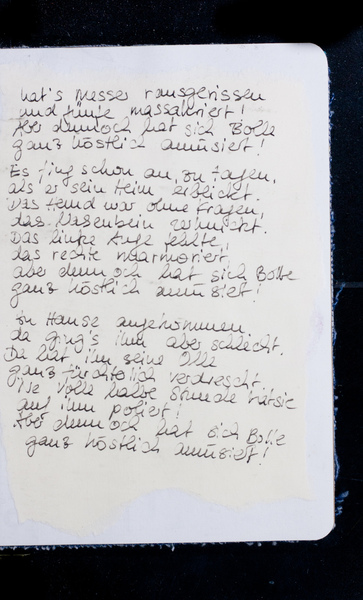 hat's Messer rausgerissen
und fünfe massakriert!
Aber dennoch hat sich Bolle
ganz köstlich amüsiert!
Es fing schon an, zu tagen,
als er sein Heim erblickt.
Das Hemd war ohne Kragen,
das Nasenbein zerknickt.
Das linke Auge fehlte,
das rechte marmoriert,
aber dennoch hat sich Bolle
ganz köstlich amüsiert!
Zu Hause angekommen,
da ging's ihm aber schlecht.
Da hat ihn seine Olle
ganz fürchterlich verdrescht.
'ne volle halbe Stunde hat sie
auf ihm poliert!
Aber dennoch hat sich Bolle
ganz köstlich amüsiert!